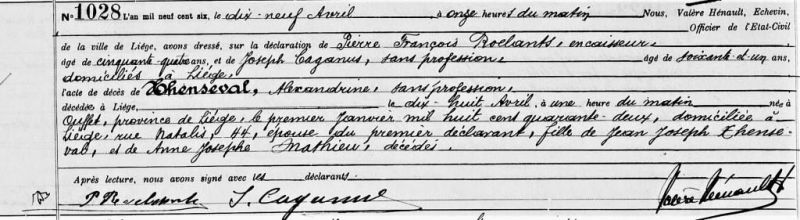 No 1028 L'an mil neuf cent six, le dix-neuf Avril à onze heures du matin Nous, Valère Hénault, Echevin,
Officier de l'Etat-Civil
de la ville de Liége, avons dressé, sur la déclaration de Pierre François Roelants, encaisseur,
âgé de cinquante quatre ans, et de Joseph Caganus, sans profession, âgé de soixante et un ans,
domiciliés à Liége,
l'acte de décès de Thenseval, Alexandrine, sans profession,
décédée à Liége, le dix-huit Avril, à une heure du matin née à
Ouffet, province de Liége, le premier Janvier mil huit cent quarante-deux, domiciliée à
Liége, rue Natalis, 44, épouse du premier déclarant, fille de Jean Joseph Thense-
val, et de Anne Josephe Mathieu, décédés.
Après lecture, nous avons signé avec les déclarants.
Valère Hénault